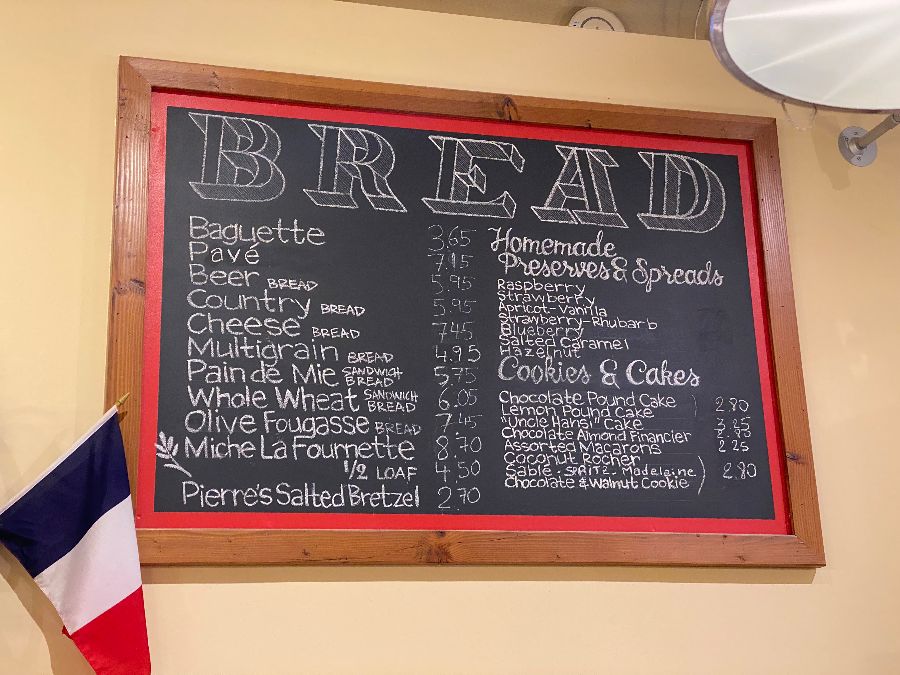 BREAD
Baguette 3.65
Pavé 7.95
Beer BREAD 5.95
Country BREAD 5.95
Cheese BREAD 7.45
Multigrain BREAD 4.95
Pain de Mie SANDWICH BREAD 5.75
Whole Wheat SANDWICH BREAD 6.05
Olive Fougasse BREAD 7.45
Miche La Fournette 8.70
1/2 LOAF 4.50
Pierre's Salted Bretzel 2.70
Homemade
Preserves & Spreads
Raspberry
Strawberry
Apricot-Vanilla
Strawberry-Rhubarb
Blueberry
Salted Caramel
Hazelnut
Cookies & Cakes
Chocolate Pound Cake
Lemon Pound Cake 2.80
"Uncle Hansi" Cake 3.25
Chocolate Almond Financier
Assorted Macarons 2.25
Coconut Rocher
Sable - SPRITZ - Madeleine 2.80
Chocolate & Walnut Cookie